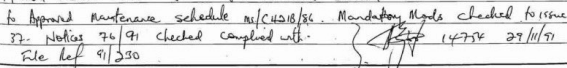 to Approved Maintenance schedule MS/CHSIB/86. Mandatory Mods checked to issue
37. Notices 76/91 checked complied with. 14754 29/11/91
File Ref 91/230